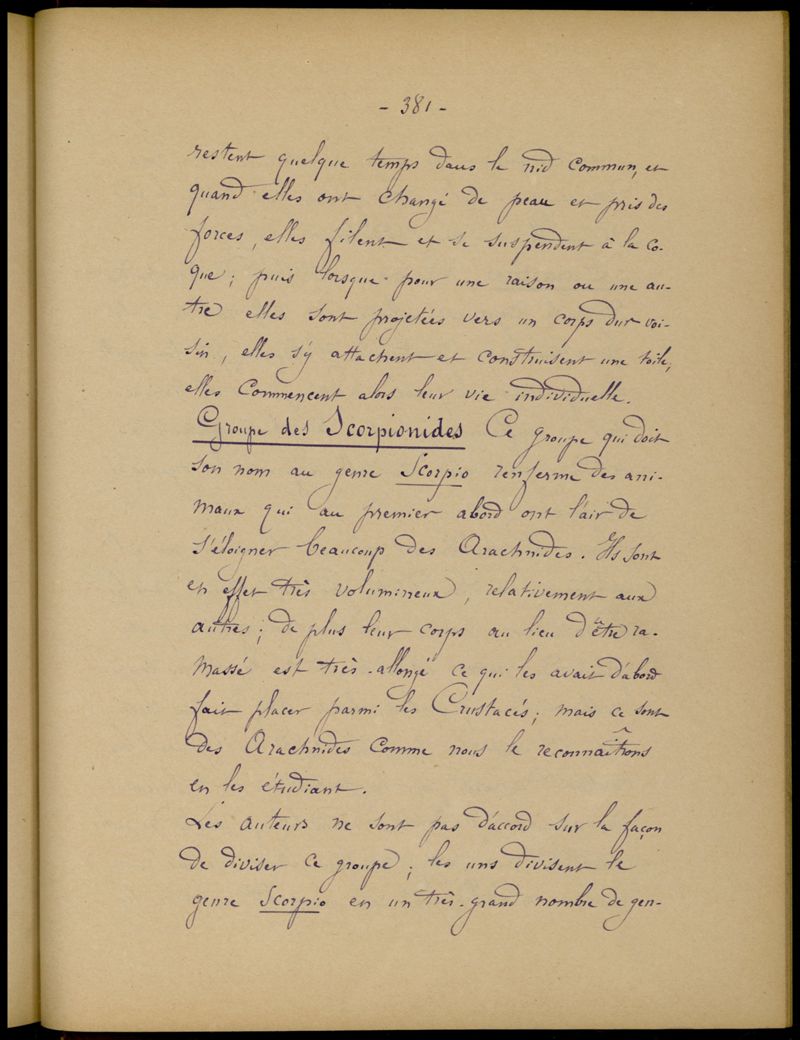 - 381 -
restent quelque temps dans le nid commun, et
quand elles ont changé de peau et pris des
forces, elles filent et se suspendent à la co-
que; puis lorsque pour une raison ou une au-
tre elles sont projetées vers un corps dur voi-
sin, elles s'y attachent et construisent une toile,
elles commencent alors leur vie individuelle.
Groupe des Scorpionides Ce groupe qui doit
son nom au genre Scorpio renferme des ani-
maux qui au premier abord ont l'air de
s'éloigner beaucoup des Arachnides. Ils sont
en effet très volumineux, relativement aux
autres; de plus leur corps au lieu d'être ra-
massé est très-allongé ce qui les avait d'abord
fait placer parmi les Crustacés; mais ce sont
des Arachnides comme nous le reconnaîtrons
en les étudiant.
Les auteurs ne sont pas d'accord sur la façon
de diviser ce groupe; les uns divisent le
genre Scorpio en un très-grand nombre de gen-